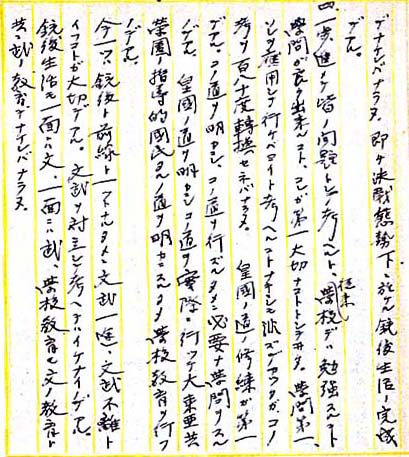 デナケレバナラヌ 即チ決戦態勢下ニ於ケル銃後生活ノ完成
デアル。
四、一歩進メテ皆ノ問題トシテ考ヘルト、従来ノ学校デハ勉強スルコト
学問が良ク出来ルコト、コレガ第一大切ナコトトシテヰタ。学問第一、
ソシテ応用シテ行ケバヨイト考ヘルコトナキニモ
考ヲ百八十度転換セネバナラヌ。 皇国ノ道ノ修練ガ第一
デアル、コノ道ヲ明カニシ、コノ道ヲ行ズルタメニ必要ナ学問ヲスル
ノデアル。 皇国ノ道ヲ明カニシコノ道ヲ実際ニ行ツテ大東亜共
栄圏ノ指導的国民タルノ道ヲ明カニスルタメ学校教育ヲ行フ
ノデアル。
今一ツハ銃後ト前線ト一ツデアルタメニ文武一進、文武不離ト
イフコトガ大切デアル。文武ヲ対立シテ考ヘテハイケナイノデアル。
銃後生活モ一面ニハ文、一面ニハ武、学校教育モ文ノ教育ト
共ニ武ノ教育デナケレバナラヌ。